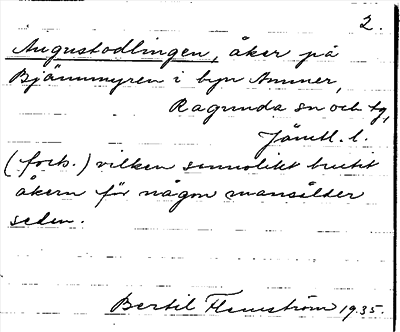 2.
Augustodlingen, åker på
Bjännmyren i byn Ammer,
Ragunda sn och tg,
Jämtl. l.
(forts.) vilken sannolikt brutit
åkern för någon mansålder
seden.
Bertil Flemström 1935.